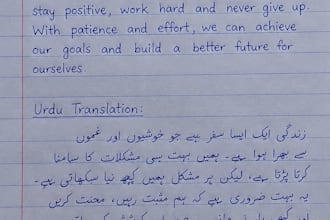 stay positive, work hard and never give up.
With patience and effort, we can achieve
our goals and build a better future for
ourselves.
Urdu Translation:
زندگی ایک ایسا سفر ہے جو خوشیوں اور غموں
سے بھرا ہوا ہے۔ ہمیں بہت سی مشکلات کا سامنا
کرنا پڑتا ہے، لیکن ہر مشکل ہمیں کچھ نیا سکھاتی ہے۔
یہ بہت ضروری ہے کہ ہم مثبت رہیں، محنت کریں